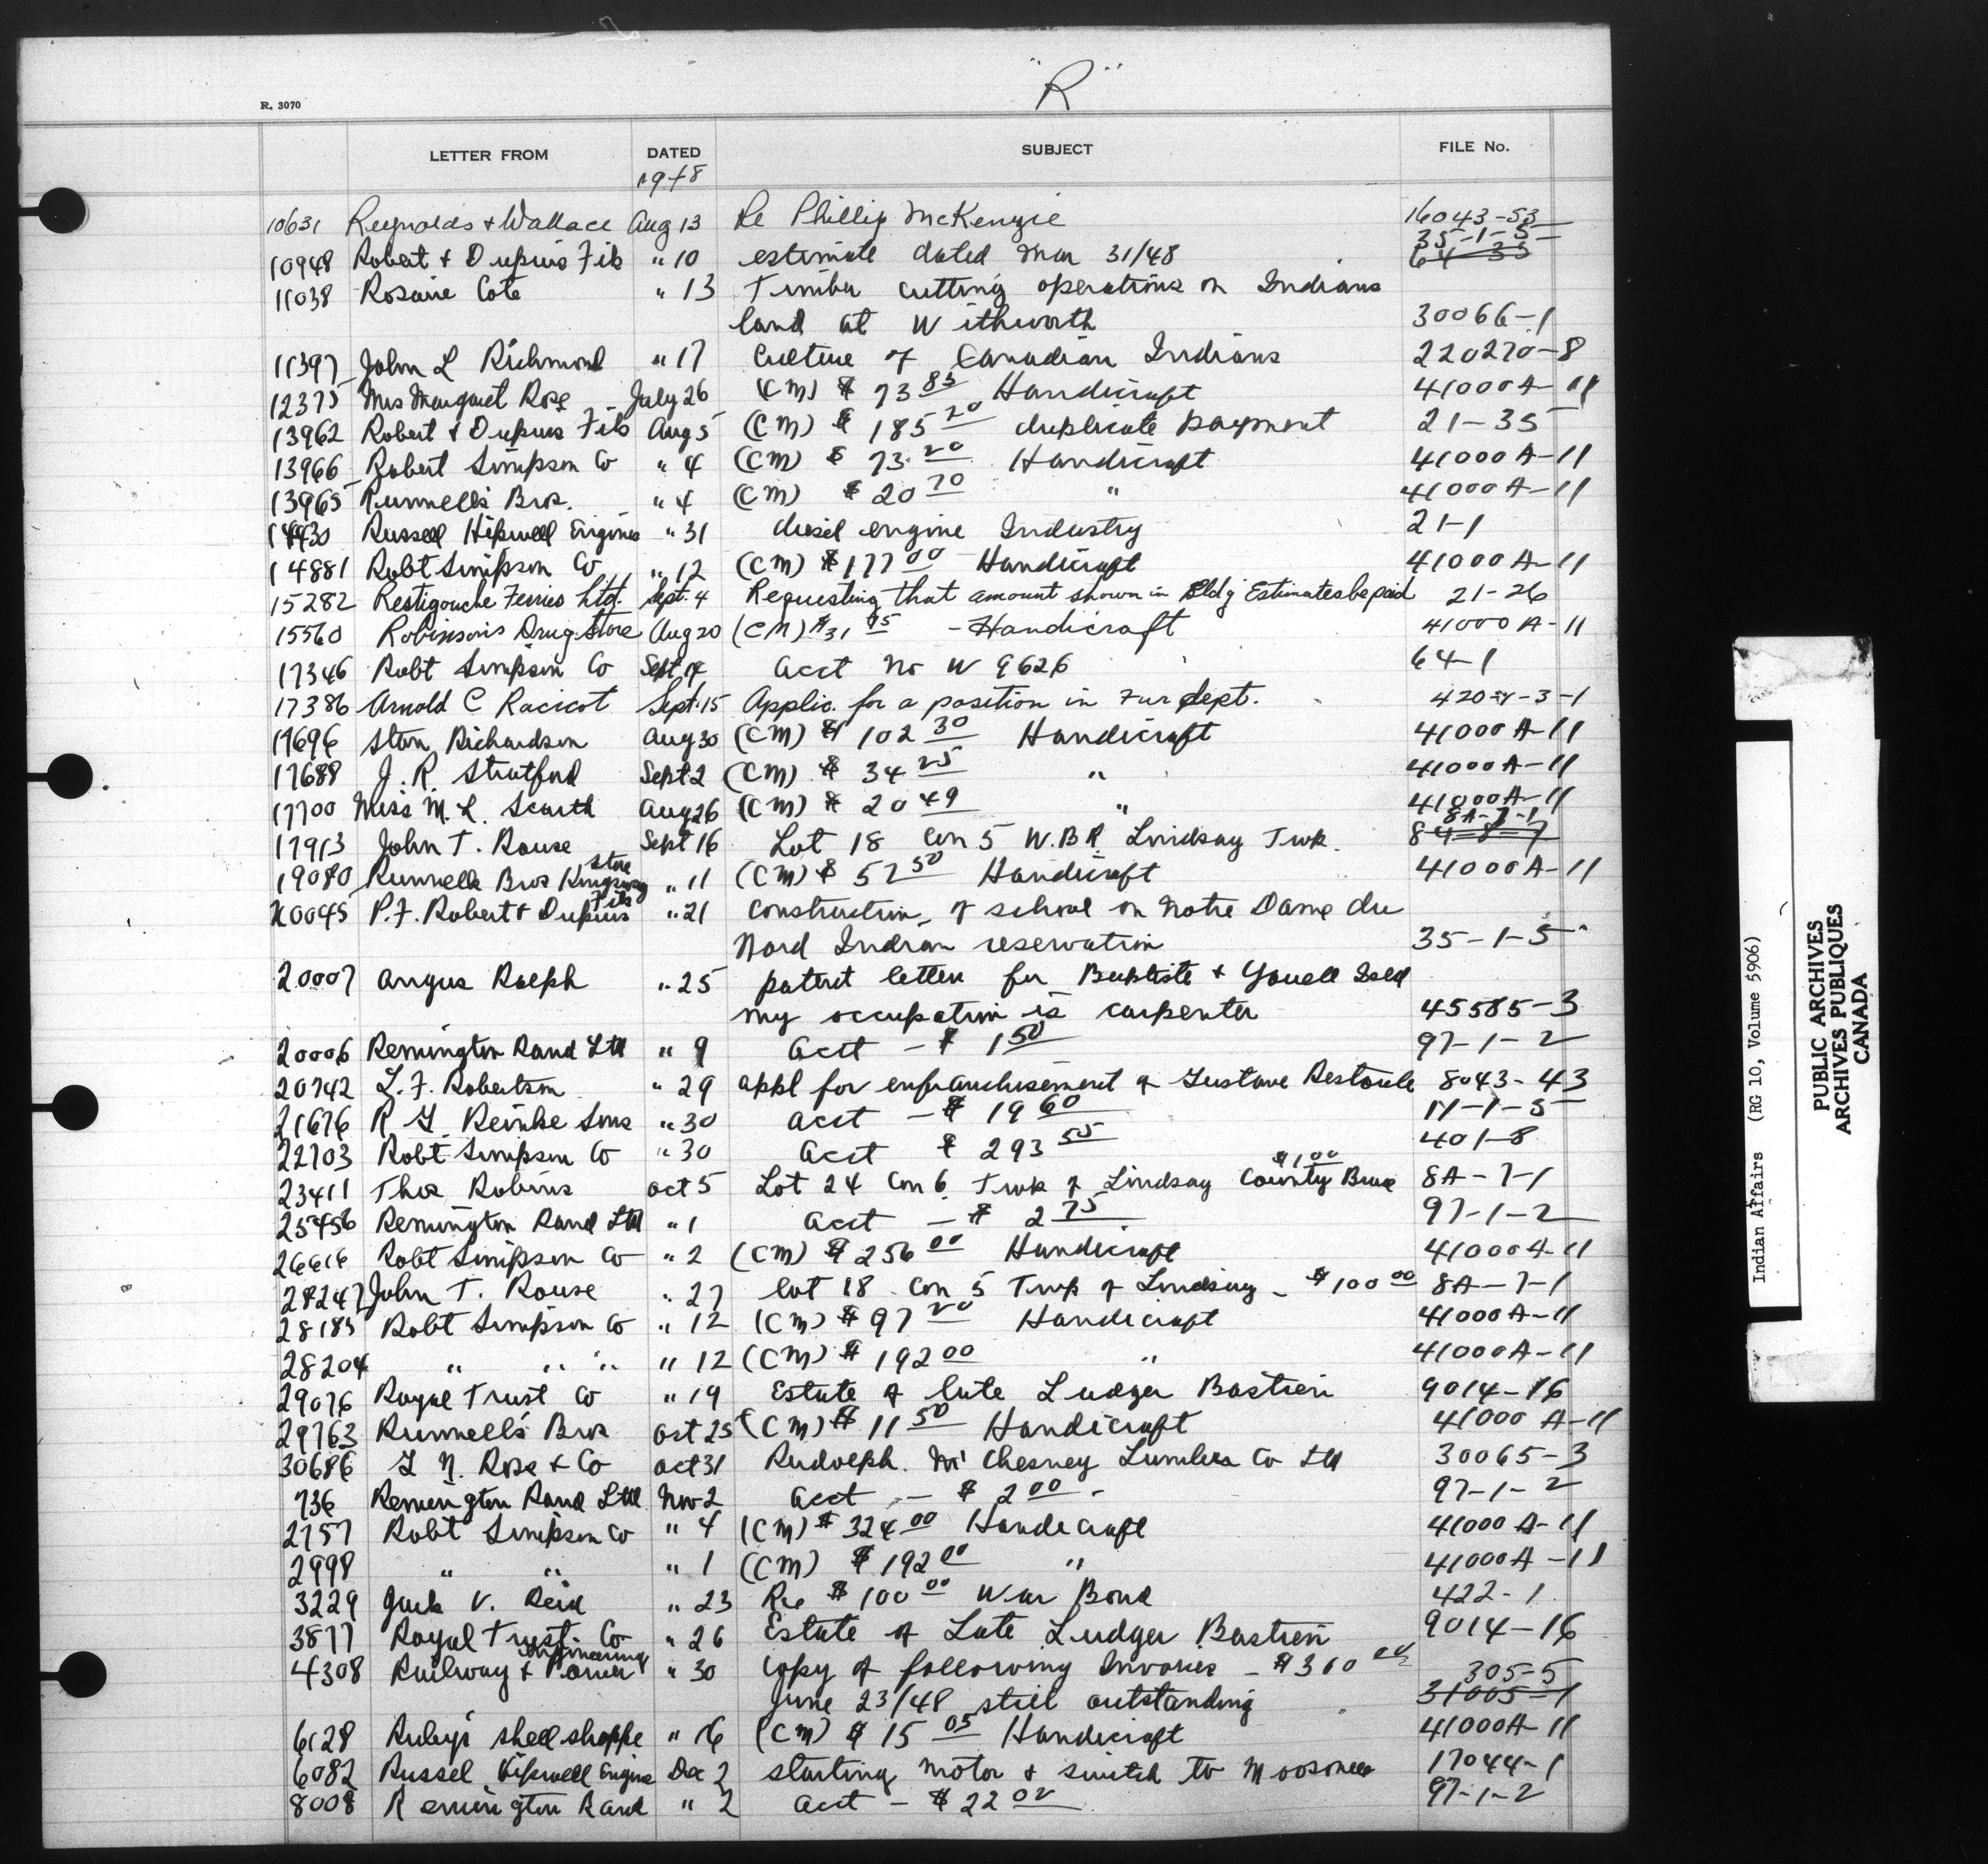 "R"
R. 3070
LETTER FROM DATED SUBJECT FILE No.
1948
10631 Reynolds + Wallace Aug 13 Re Phillip McKenzie 16043-53
35-1-5
10948 Robert + Dupuis Fils " 10 estimate dated Mar 31/48 64-33
11038 Rosaire Cote " 13 Timber cutting operations on Indians
land at Withworth 30066-1
11397 John L Richmond " 17 Culture of Canadian Indians 220270-8
12375 Mrs Margaret Rose July 26 (CM) $ 73 85 Handicraft 41000A-11
13962 Robert + Dupuis Fils Aug 5 (CM) $ 185 20 duplicate payment 21-35
13966 Robert Simpson Co " 4 (CM) $ 73.20 Handicraft 41000A-11
13965 Runnells Bros. " 4 (CM) $ 20 70 " 41000A-11
14430 Russell Hipwell Engines " 31 diesel engine Industry 21-1
14881 Robt Simpson Co " 12 (CM) $177 00 Handicraft 41000A-11
15282 Restigouche Ferries Ltd. Sept. 4 Requesting that amount shown in Bldg Estimates be paid 21-26
15560 Robinson's Drug Store Aug 20 (CM) $31 95 - Handicraft 41000A-11
17346 Robt Simpson Co Sept 14 Acct No W 9626 64-1
17386 Arnold C Racicot Sept. 15 Applic. for a position in Fur dept. 420-3-1
17696 Stan Richardson Aug 30 (CM) $ 102 30 Handicraft 41000A-11
17688 J. R. Stratford Sept 2 (CM) $ 34 25 " 41000A-11
17700 Miss M. L. Scarth Aug 26 (CM) $ 20 49 " 41000A-11
8A-7-1
17913 John T. Rouse Sept 16 Lot 18 Con 5 W.B.R. Lindsay Twp. 84-8-7
store
19080 Runnells Bros Kingsway " 11 (CM) $ 57 50 Handicraft 41000A-11
Fils
20045 P.F. Robert + Dupuis " 21 Construction of school on Notre Dame du
Nord Indian reservation 35-1-5
20007 Angus Ralph " 25 patent letter for Baptiste + Youell
my occupation is carpenter 45585-3
20006 Remington Rand Ltd " 9 Acct - $ 1 50 97-1-2
20742 L. F. Robertson " 29 appl for enfranchisement of Gustave Restoule 8043-43
21676 R Reinke Sons " 30 Acct - $ 19 60 11-1-5
22703 Robt Simpson Co " 30 Acct $ 293 55 401-8
$100
23411 Thos Robins Oct 5 Lot 24 Con 6 Twp of Lindsay County Bruce 8A-7-1
25456 Remington Rand Ltd " 1 Acct - $ 2 75 97-1-2
26616 Robt Simpson Co " 2 (CM) $ 256 00 Handicraft 41000A-11
28247 John T. Rouse " 27 Lot 18 Con 5 Twp of Lindsay - $100 00 8A-7-1
28185 Robt Simpson Co " 12 (CM) $ 97 20 Handicraft 41000A-11
28204 " " " " 12 (CM) $ 192 00 " 41000A-11
29076 Royal Trust Co " 19 Estate of late Ludger Bastien 9014-16
29763 Runnell's Bros Oct 25 (CM) $ 11 50 Handicraft 41000A-11
30686 N. Rose + Co Oct 31 Rudolph McChesney Lumber Co Ltd 30065-3
736 Remington Rand Ltd Nov 2 Acct - $ 2 00 - 97-1-2
2757 Robt Simpson Co " 4 (CM) $ 324 00 Handicraft 41000A-11
2998 " " " 1 (CM) $ 192 00 " 41000A-11
3229 Jack V. Reid " 23 Re $ 100 00 War Bond 422-1
3877 Royal Trust Co " 26 Estate of Late Ludger Bastien 9014-16
Engineering 305-5
4308 Railway + Power " 30 Copy of following Invoices - $360
June 23/48 still outstanding 31005-1
6128 Ruby's Shell shoppe " 16 (CM) $ 15 05 Handicraft 41000A-11
6082 Russel Hipwell Engine Dec 2 starting motor + switch to Moosonee 17044-1
8008 Remington Rand " 2 Acct - $ 22 02 97-1-2
Indian Affairs (RG 10, Volume 5906)
PUBLIC ARCHIVES
ARCHIVES PUBLIQUES
CANADA